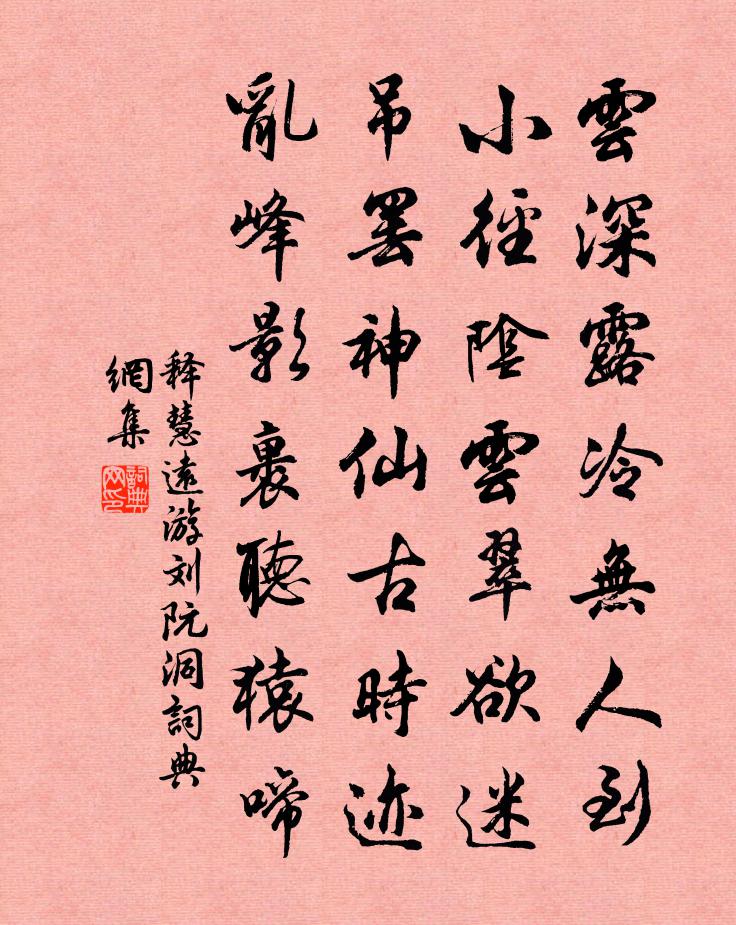 雲深露冷無人到
小徑陰雲翠欲迷
吊罢神仙古時迹
亂峰影裏聽猿啼
释慧遠游刘阮洞詞典
網集
詞典
网印